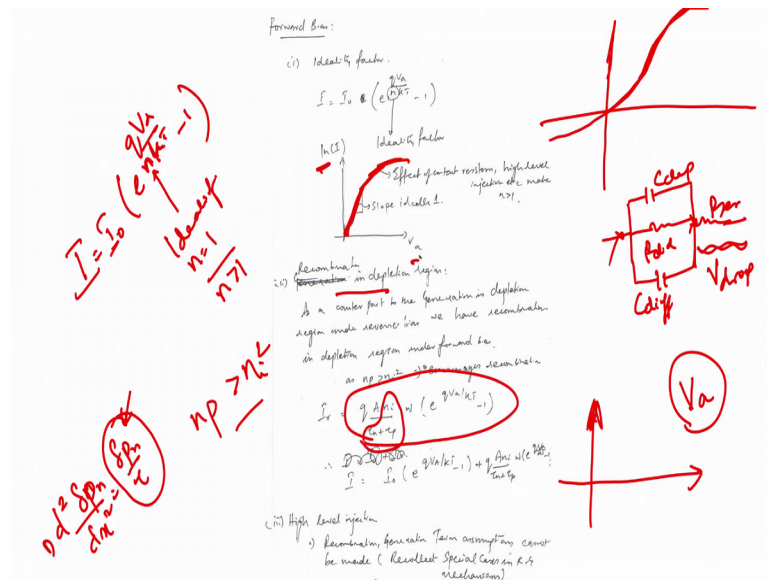 Forward Bias:
(i) Ideality factor.
I = I₀ (e^(qVa/nkT) - 1)
Ideality factor
ln(I)
Effect of contact resistors, high level
injection etc make
n>1.
Slope ideally 1.
Va
(ii) Recombination in depletion region:
As a counter part to the generation in depletion
region under reverse bias we have recombination
in depletion region under forward bias.
as np > ni² encourages recombination
Ir = qAni/(τn+τp) w (e^(qVa/kT) - 1)
∴ I = I₀ (e^(qVa/kT) - 1) + qAni/(τn+τp) w (e
(iii) High level injection
Recombination, Generation Term assumptions cannot
be made (Recollect Special Cases in R.G
mechanism)
I = I₀ (e^(qVa/nkT) - 1)
n=1
n>1
np > ni²
D d²δpn/dx² = δpn/τ
Cdep
Cdiff
Vdrop
Va